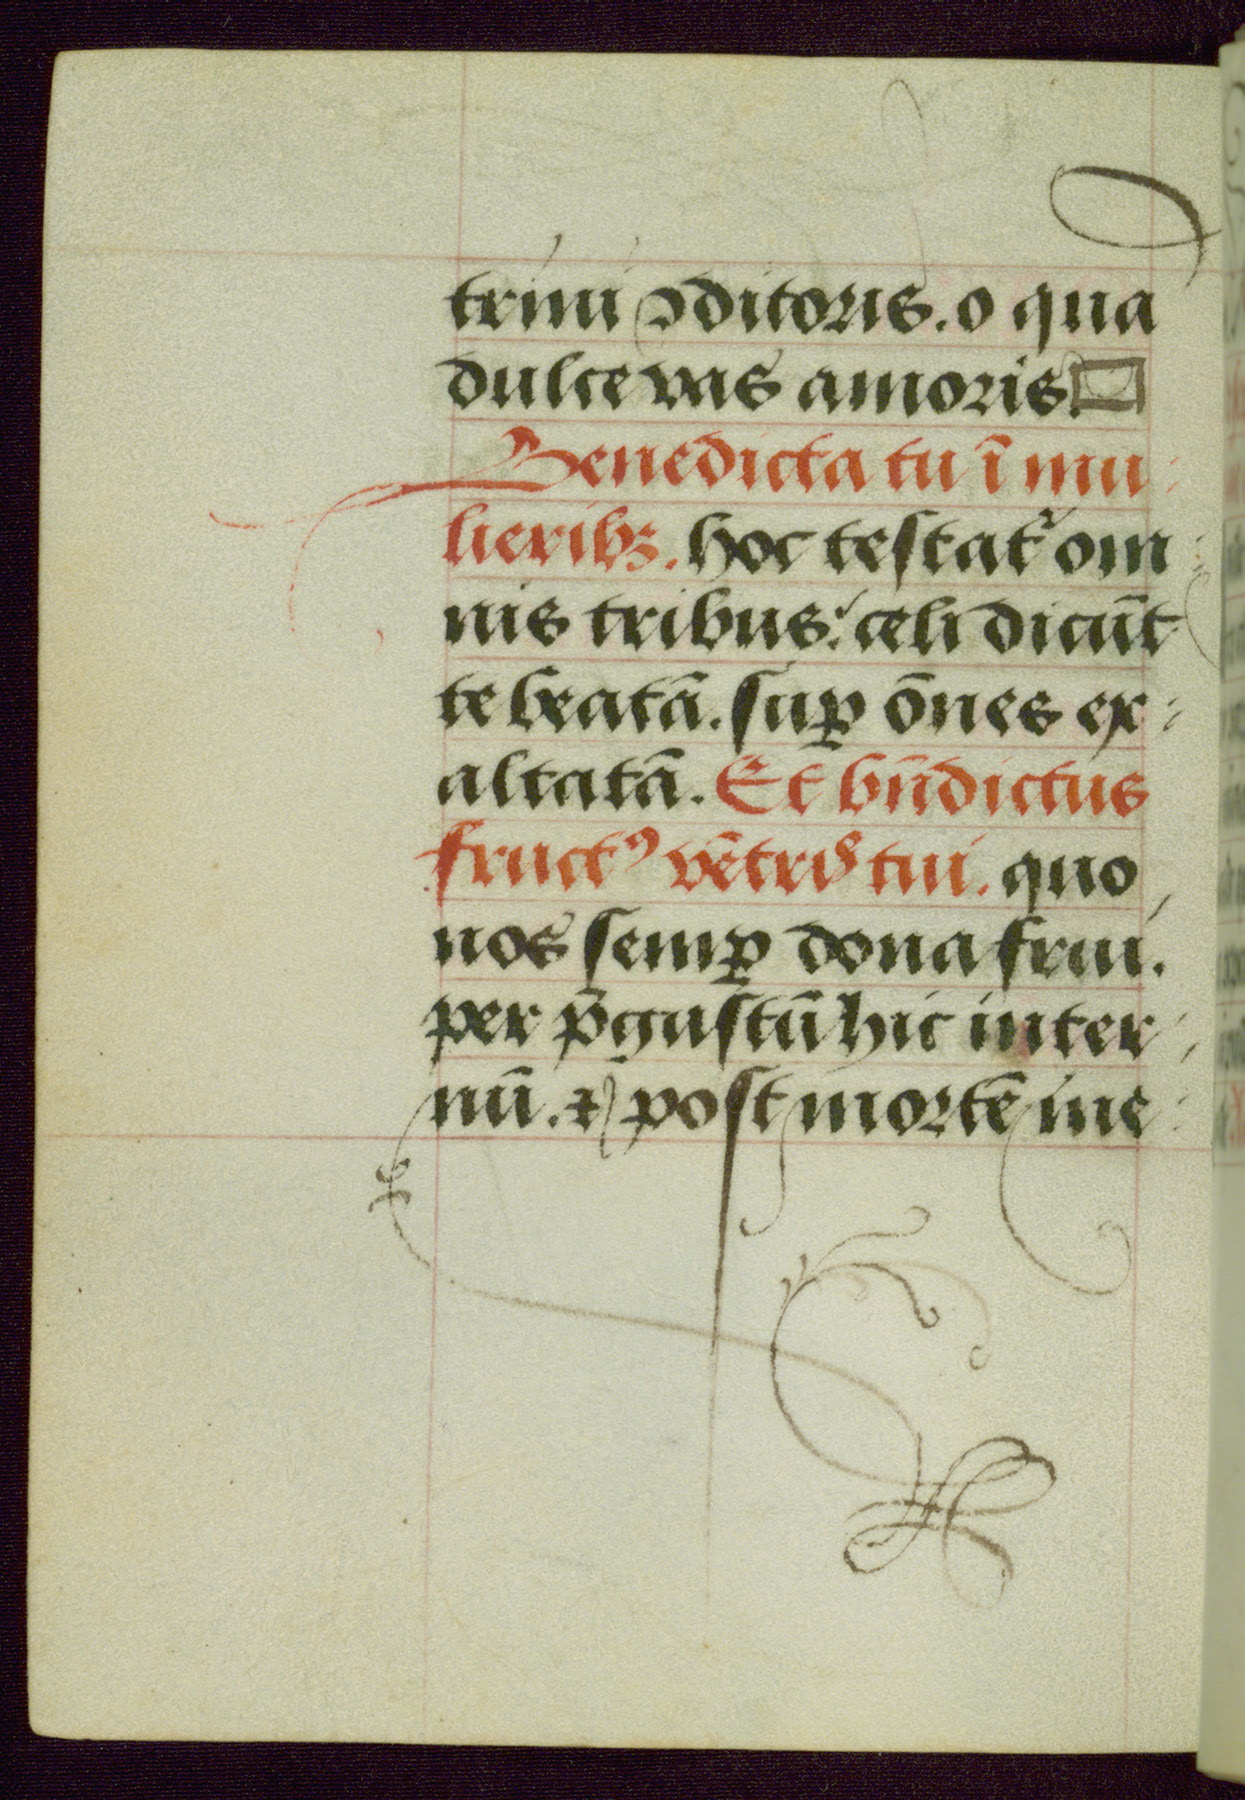 trini ↄditoris. o qua
dulce vas amoris.
Benedicta tu ī mu
lieribꝫ. hoc testat᷑ om
nis tribus: celi dicūt
te beatā. suꝑ ōnes ex-
altatā. Et bn̄dictus
fructꝰ vētris tui. quo
nos semꝑ dona frui.
per p̄gustū hic inter-
nū. ⁊ post mortē ine